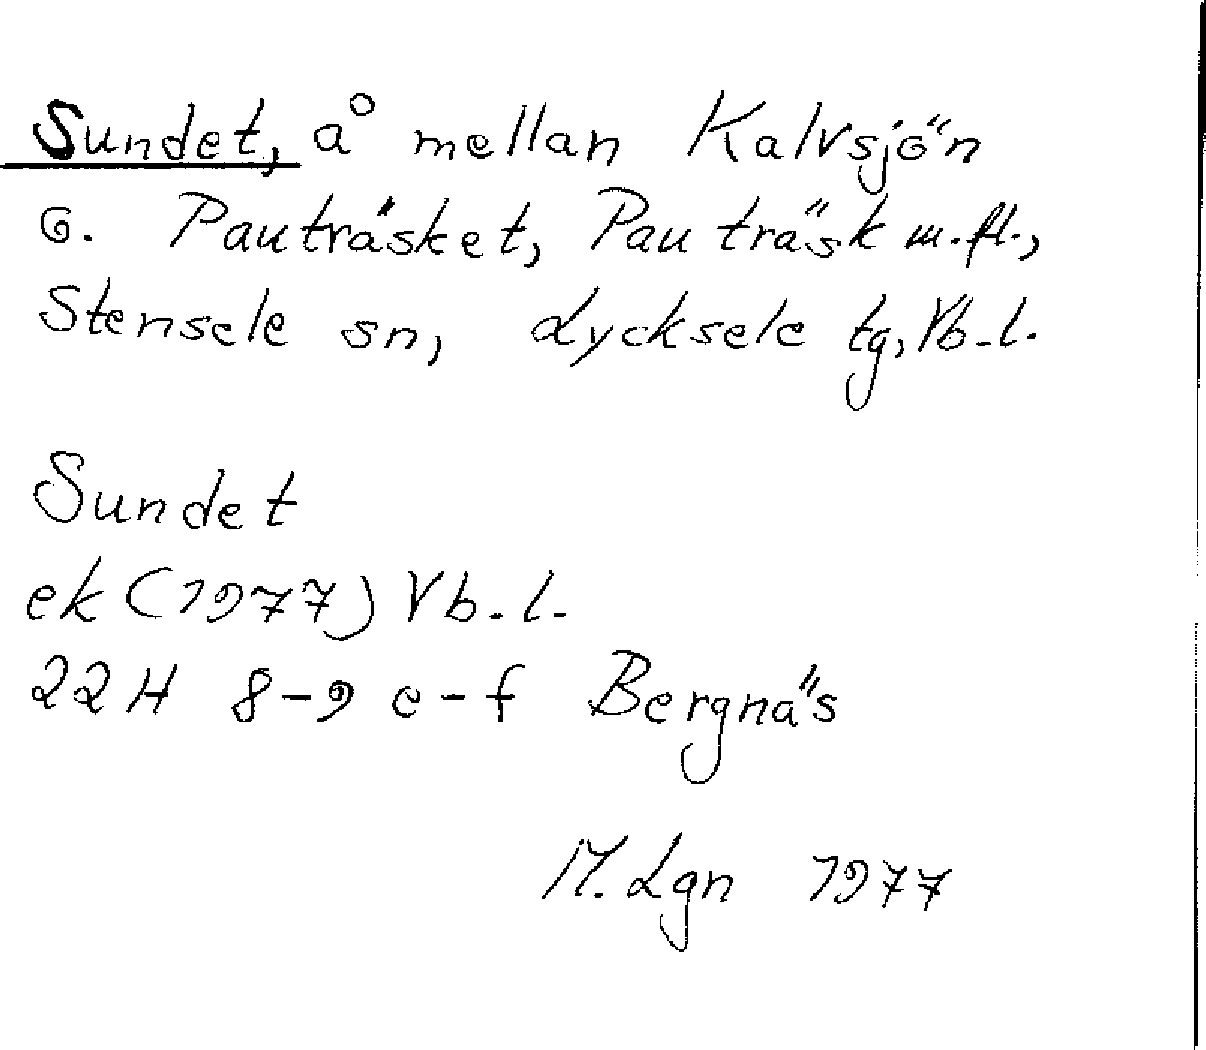 Sundet, å mellan Kalvsjön
o. Pauträsket, Pauträsk m.fl.,
Stensele sn, Lycksele tg, Vb.l.
Sundet
ek (1977) Vb.l.
22H 8-9 e-f Bergnäs
M. Lgn 1977